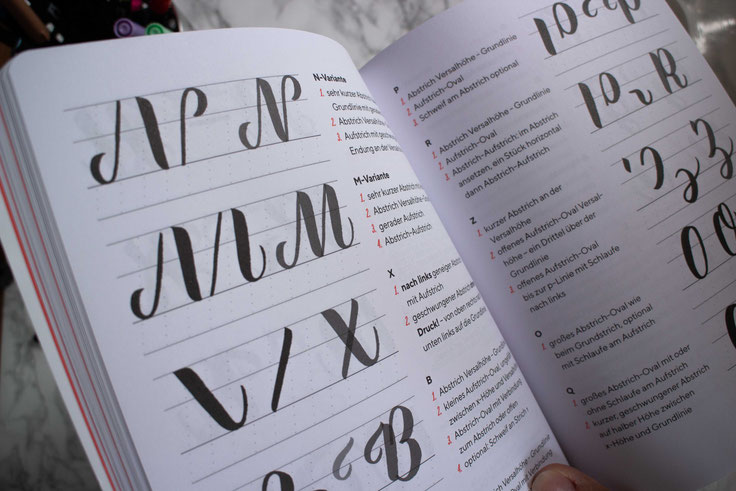 N
N-Variante
1. sehr kurzer
Grundlinie mit
2. Abstrich
3. Aufstrich mit
Endung an der
M
M-Variante
1. sehr kurzer Abstrich
2. Abstrich
3. gerader Aufstrich
4. Abstrich-Aufstrich
X
X
1. nach links geneigter
mit Aufstrich
2. geschwungener Abstrich
Druck! – von oben rechts
unten links auf die
B
B
1. Abstrich Versalhöhe –
2. kleines Aufstrich-Oval,
zwischen x-Höhe und
3. Abstrich-Oval mit Verbindung
zum Abstrich oder offen
4. optional: Schweif an
P
1. Abstrich Versalhöhe – Grundlinie
2. Aufstrich-Oval
3. Schweif am Abstrich optional
R
R
1. Abstrich Versalhöhe – Grundlinie
2. Aufstrich-Oval
3. Abstrich-Aufstrich: im Abstrich
ansetzen, ein Stück horizontal
dann Abstrich-Aufstrich
Z
1. kurzer Abstrich an der
Versalhöhe
2. offenes Aufstrich-Oval Versal-
höhe – ein Drittel über der
Grundlinie
3. offenes Aufstrich-Oval
bis zur p-Linie mit Schlaufe
nach links
O
1. großes Abstrich-Oval wie
beim Grundstrich, optional
mit Schlaufe am Aufstrich
Q
1. großes Abstrich-Oval mit oder
ohne Schlaufe am Aufstrich
2. kurzer, geschwungener Abstrich
auf halber Höhe zwischen
x-Höhe und Grundlinie